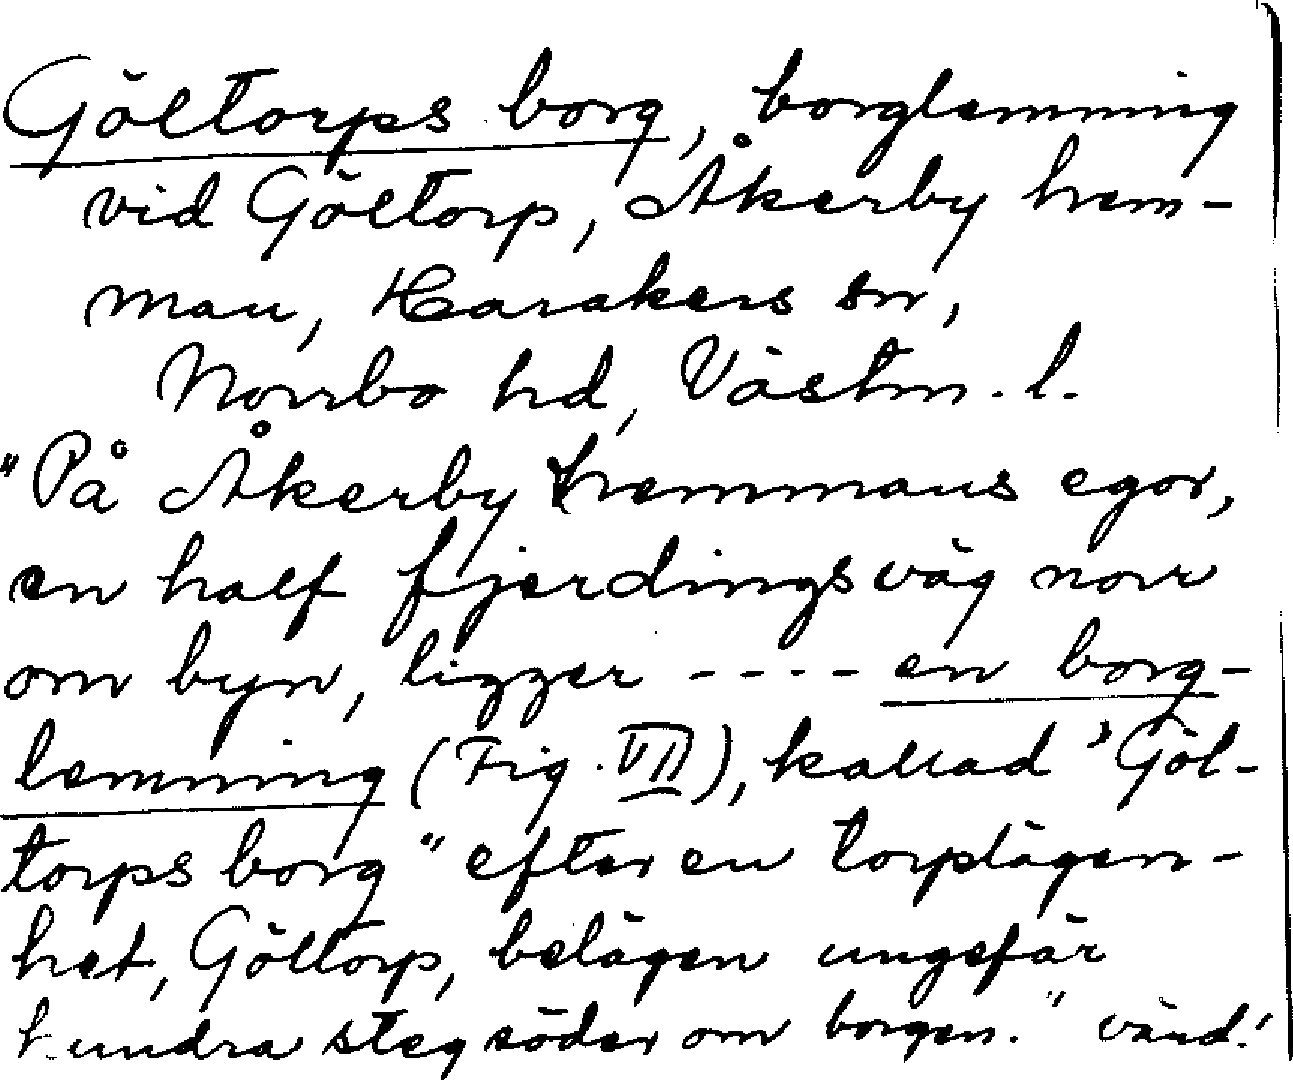 Göltorps borg, borglemning
vid Göltorp, Åkerby hem-
man, Harakers sn,
Norrbo hd, Västm. l.
"På Åkerby hemmans egor,
en half fjerdingsväg norr
om byn, ligger ---- en borg-
lemning (Fig. VII), kallad "Göl-
torps borg" efter en torplägen-
het, Göltorp, belägen ungefär
hundra steg söder om borgen." vänd!